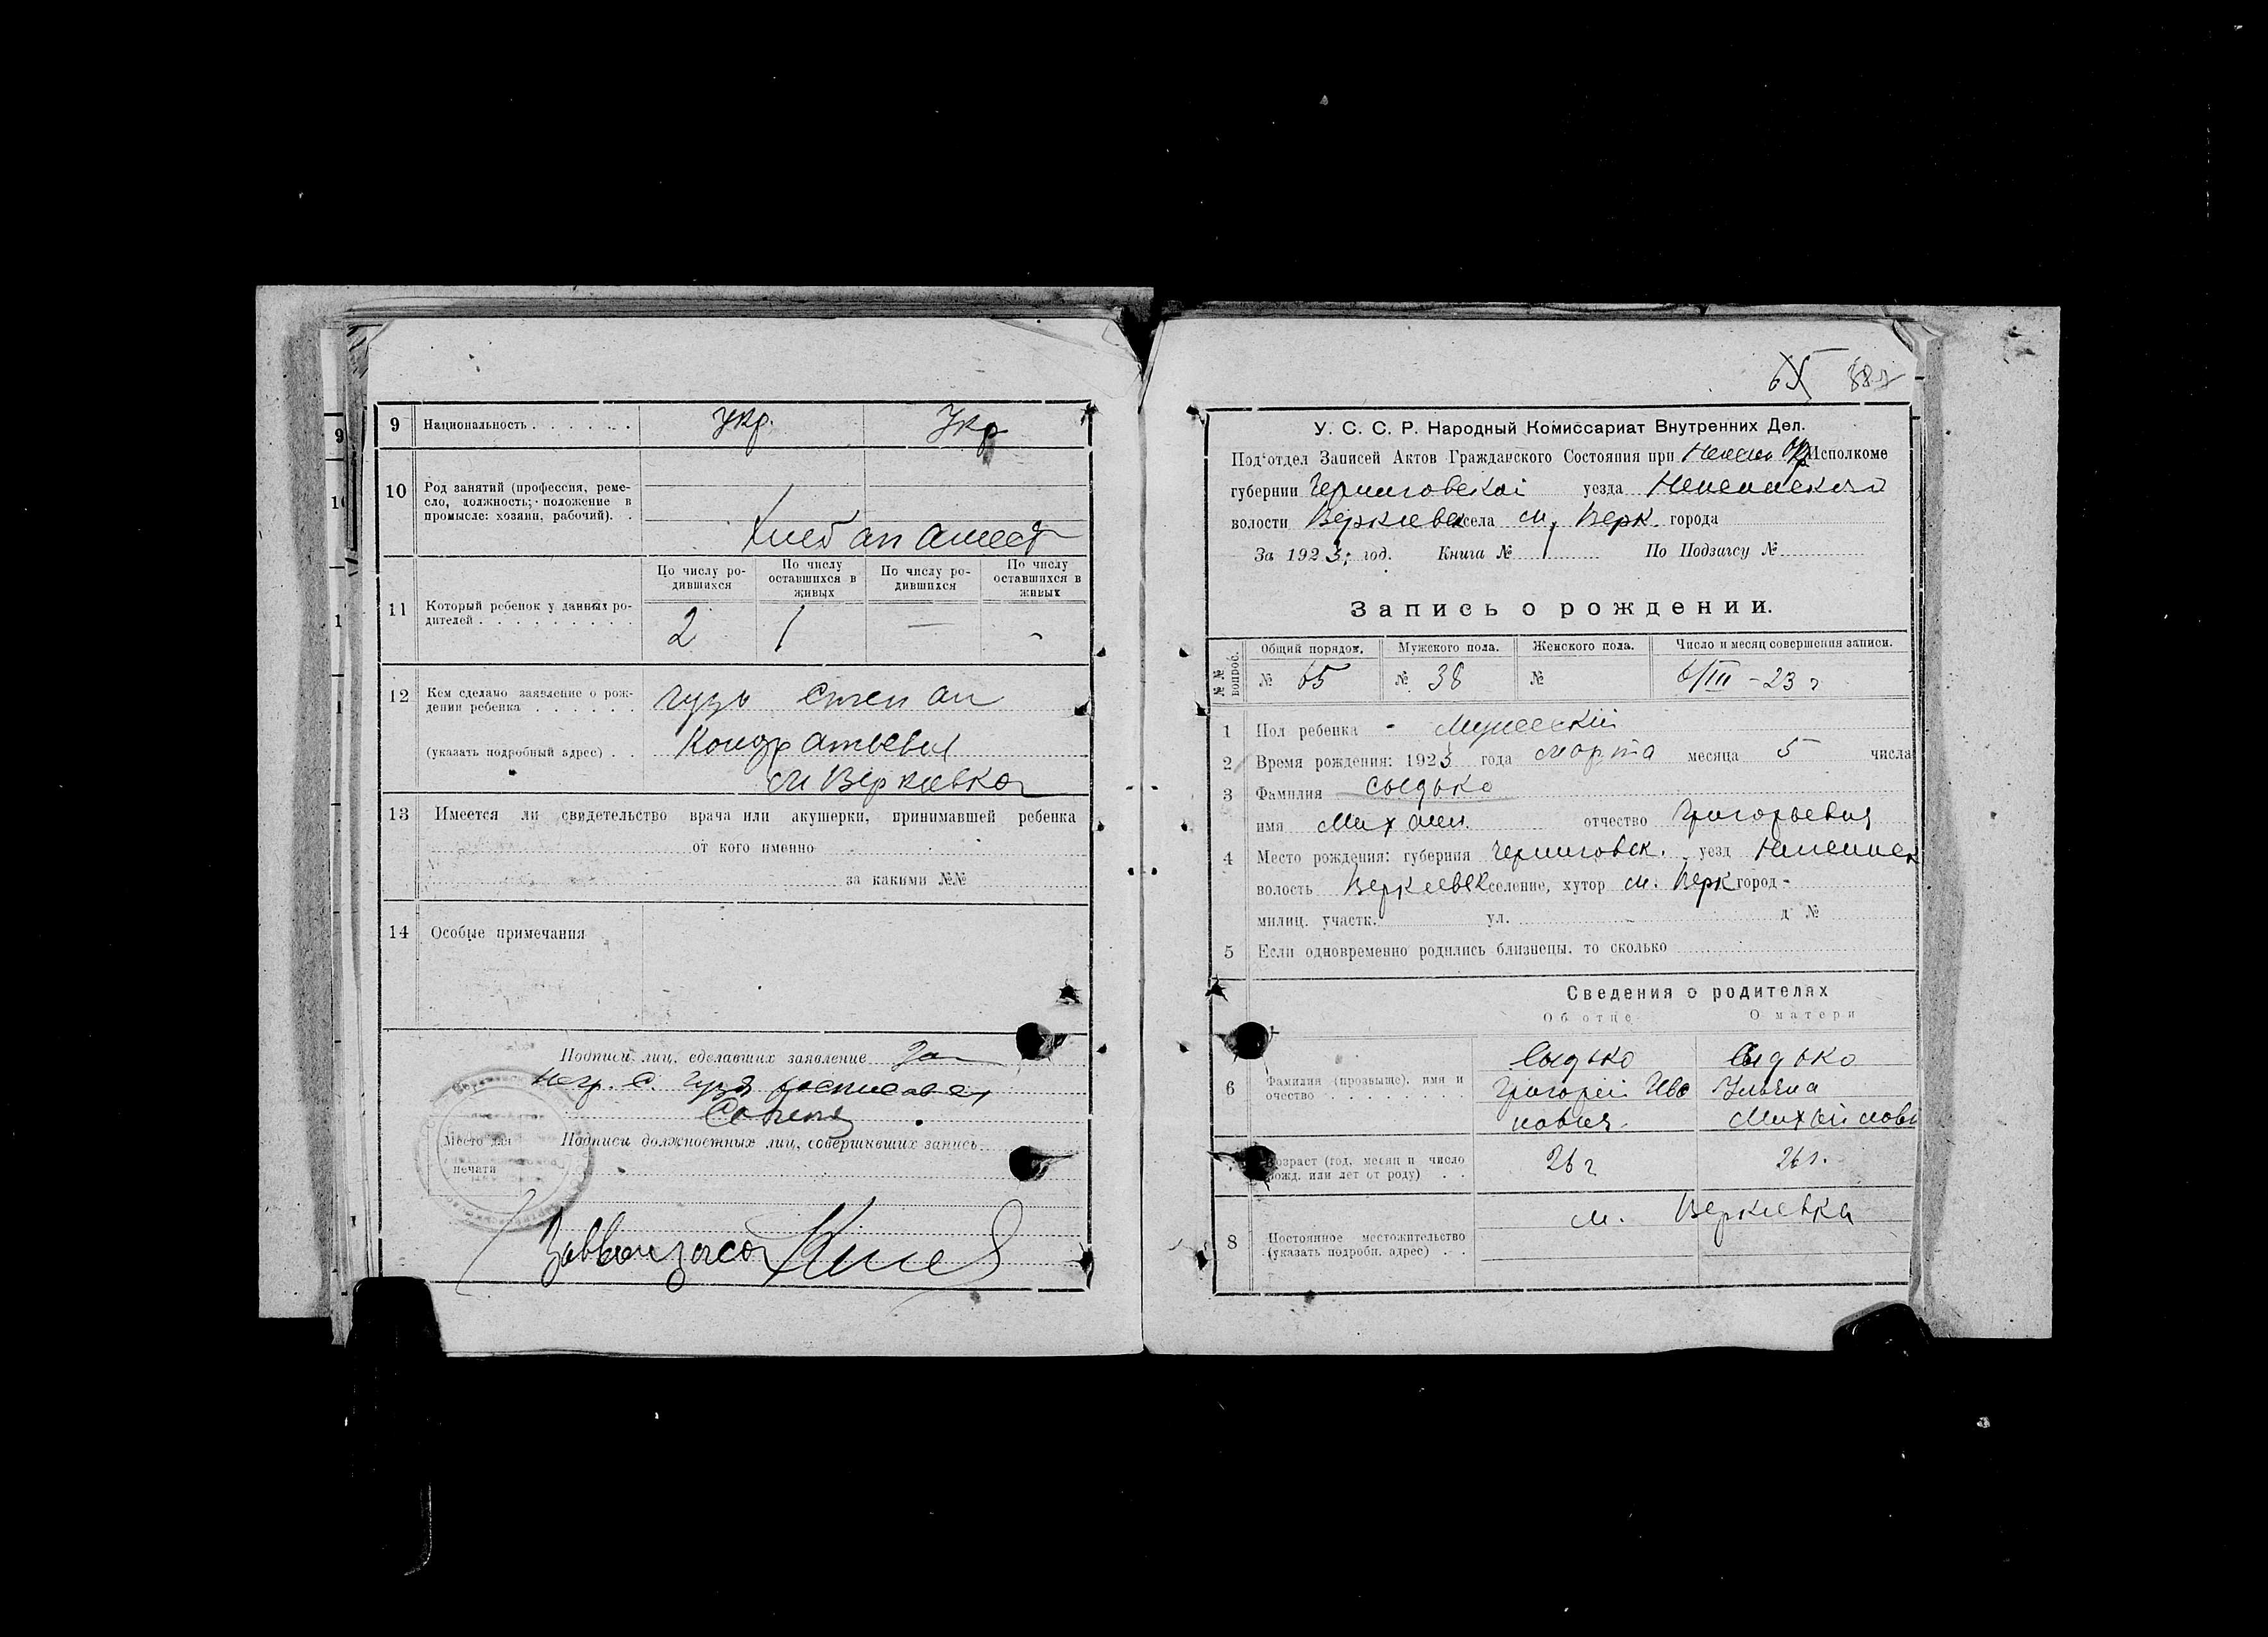 9 Национальность укр. Укр
10 Род занятий (профессия, реме-
сло, должность; положение в
промысле: хозяин, рабочий).
Хлебопашест
По числу ро- По числу По числу ро- По числу
дившихся оставшихся в дившихся оставшихся в
живых живых
11 Который ребенок у данных ро-
дителей 2 1 — -
12 Кем сделано заявление о рож-
дении ребенка гузь Степан
(указать подробный адрес) Кондратьевич
м Веркиевка
13 Имеется ли свидетельство врача или акушерки, принимавшей ребенка
от кого именно
за какими №№
14 Особые примечания
Подписи лиц, сделавших заявление За
негр. С. Гузя росписався
Место для Подписи должностных лиц, совершивших запись
печати
65 88
У. С. С. Р. Народный Комиссариат Внутренних Дел.
Под'отдел Записей Актов Гражданского Состояния при Исполкоме
губернии Черниговской уезда Неженского
волости Веркиевск села м. Верк. города
За 1923: год. Книга № 1 По Подзагсу №
Запись о рождении.
№№ вопрос. Общий порядок. Мужского пола. Женского пола. Число и месяц совершения записи.
№ 65 № 38 № 6/III - 23 г
1 Пол ребенка - Мужескій
2 Время рождения: 1923 года марта месяца 5 числа
3 Фамилия Сыдько
имя Михаил отчество Григорьевич
4 Место рождения: губерния Черниговск. уезд Неженск
волость Веркиевск селение, хутор м. Верк город -
милиц. участк. ул. д №
5 Если одновременно родились близнецы, то сколько
Сведения о родителях
Об отце О матери
6 Фамилия (прозвыще), имя и
очество
Сыдько Сыдько
Григорій Ива Ульяна
нович. Михайлови
Возраст (год, месяц и число
рожд. или лет от роду) 26 г 26 г.
м. Веркиевка
8 Постоянное местожительство
(указать подробн. адрес)